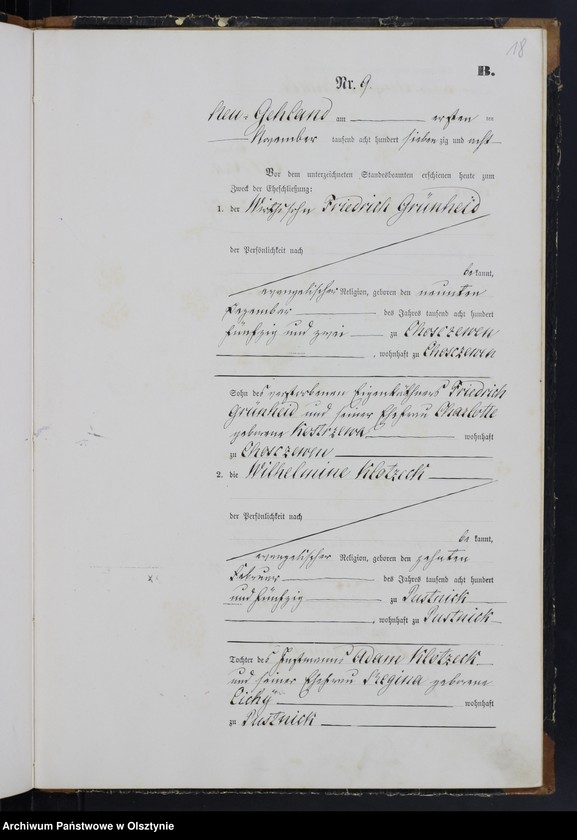 18
B.
Nr. 9.
Neu-Gehland am ersten ten
November tausend acht hundert siebenzig und acht
Vor dem unterzeichneten Standesbeamten erschienen heute zum
Zweck der Eheschließung:
1. der Wirthssohn Friedrich Grünheid
der Persönlichkeit nach
be kannt,
evangelischer Religion, geboren den neunten
Dezember des Jahres tausend acht hundert
fünfzig und zwei zu Chosczewen
, wohnhaft zu Chosczewen
Sohn des verstorbenen Eigenkäthners Friedrich
Grünheid und seiner Ehefrau Charlotte
geborene Kostrzewa wohnhaft
zu Chosczewen
2. die Wilhelmine Klotzeck
der Persönlichkeit nach
be kannt,
evangelischer Religion, geboren den zehnten
Februar des Jahres tausend acht hundert
und fünfzig zu Pustnick
, wohnhaft zu Pustnick
Tochter des Instmanns Adam Klotzeck
und seiner Ehefrau Regina geborene
Cichy wohnhaft
zu Pustnick
Archiwum Państwowe w Olsztynie